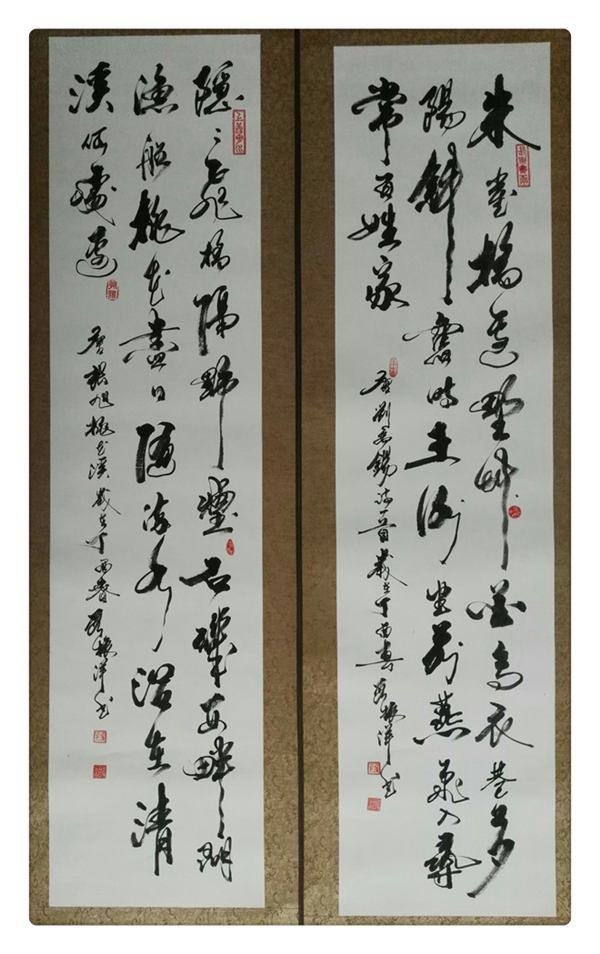 朱雀橋邊野艸花烏衣巷口夕
陽斜舊時王謝堂前燕飛入尋
常百姓家
唐劉禹錫詩一首歲在丁酉春振洋书
隱〻飛橋隔野煙石磯西畔問
漁船桃花盡日隨流水洞在清
溪何處邊
唐張旭桃花溪歲在丁酉春振洋书